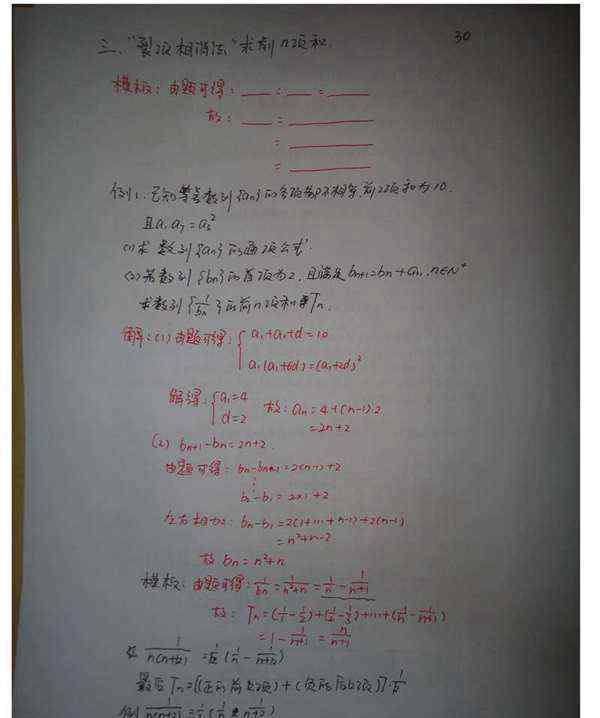 三、"裂项相消法"求前n项和. 30
模板：由题可得：___ = ___ = ____
故：___ = ________
= ________
= ________
例1、已知等差数列{an}的各项都不相等，前2项和为10，
且a1a7=a3²
(1)求数列{an}的通项公式.
(2)若数列{bn}的首项为2，且满足bn+1=bn+an，n∈N⁺
求数列{1/bn}的前n项和Tn.
解：(1)由题可得：{ a1+a1+d=10
a1(a1+6d)=(a1+2d)²
解得：{ a1=4
d=2 故：an=4+(n-1)·2
=2n+2
(2) bn+1-bn=2n+2.
由题可得：bn-bn-1=2(n-1)+2
⋮
b2-b1=2×1+2
左右相加：bn-b1=2(1+…+n-1)+2(n-1)
=n²+n-2
故 bn=n²+n
模板：由题可得：1/bn=1/(n²+n)=1/n-1/(n+1)
故：Tn=(1/1-1/2)+(1/2-1/3)+…+(1/n-1/(n+1))
=1-1/(n+1)=n/(n+1)
1/(n(n+k))=1/k(1/n-1/(n+k))
最后Tn=[(正的前k项)+(负的后k项)]·1/k
例 1/(n(n+2))=1/2(1/n-1/(n+2))